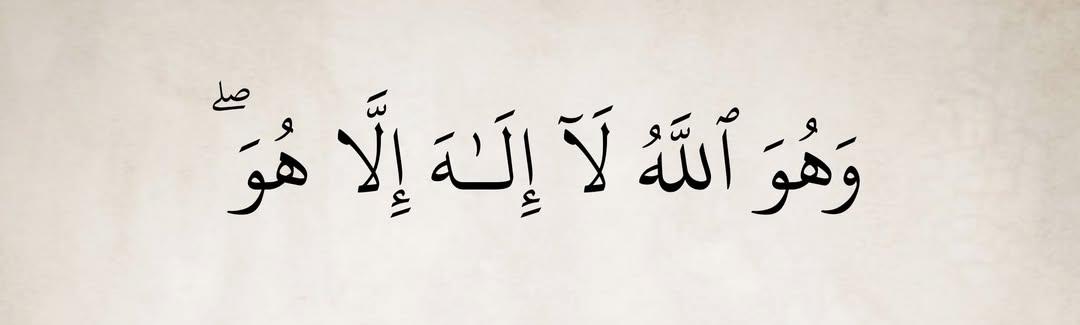 وَهُوَ ٱللَّهُ لَآ إِلَـٰهَ إِلَّا هُوَۖ